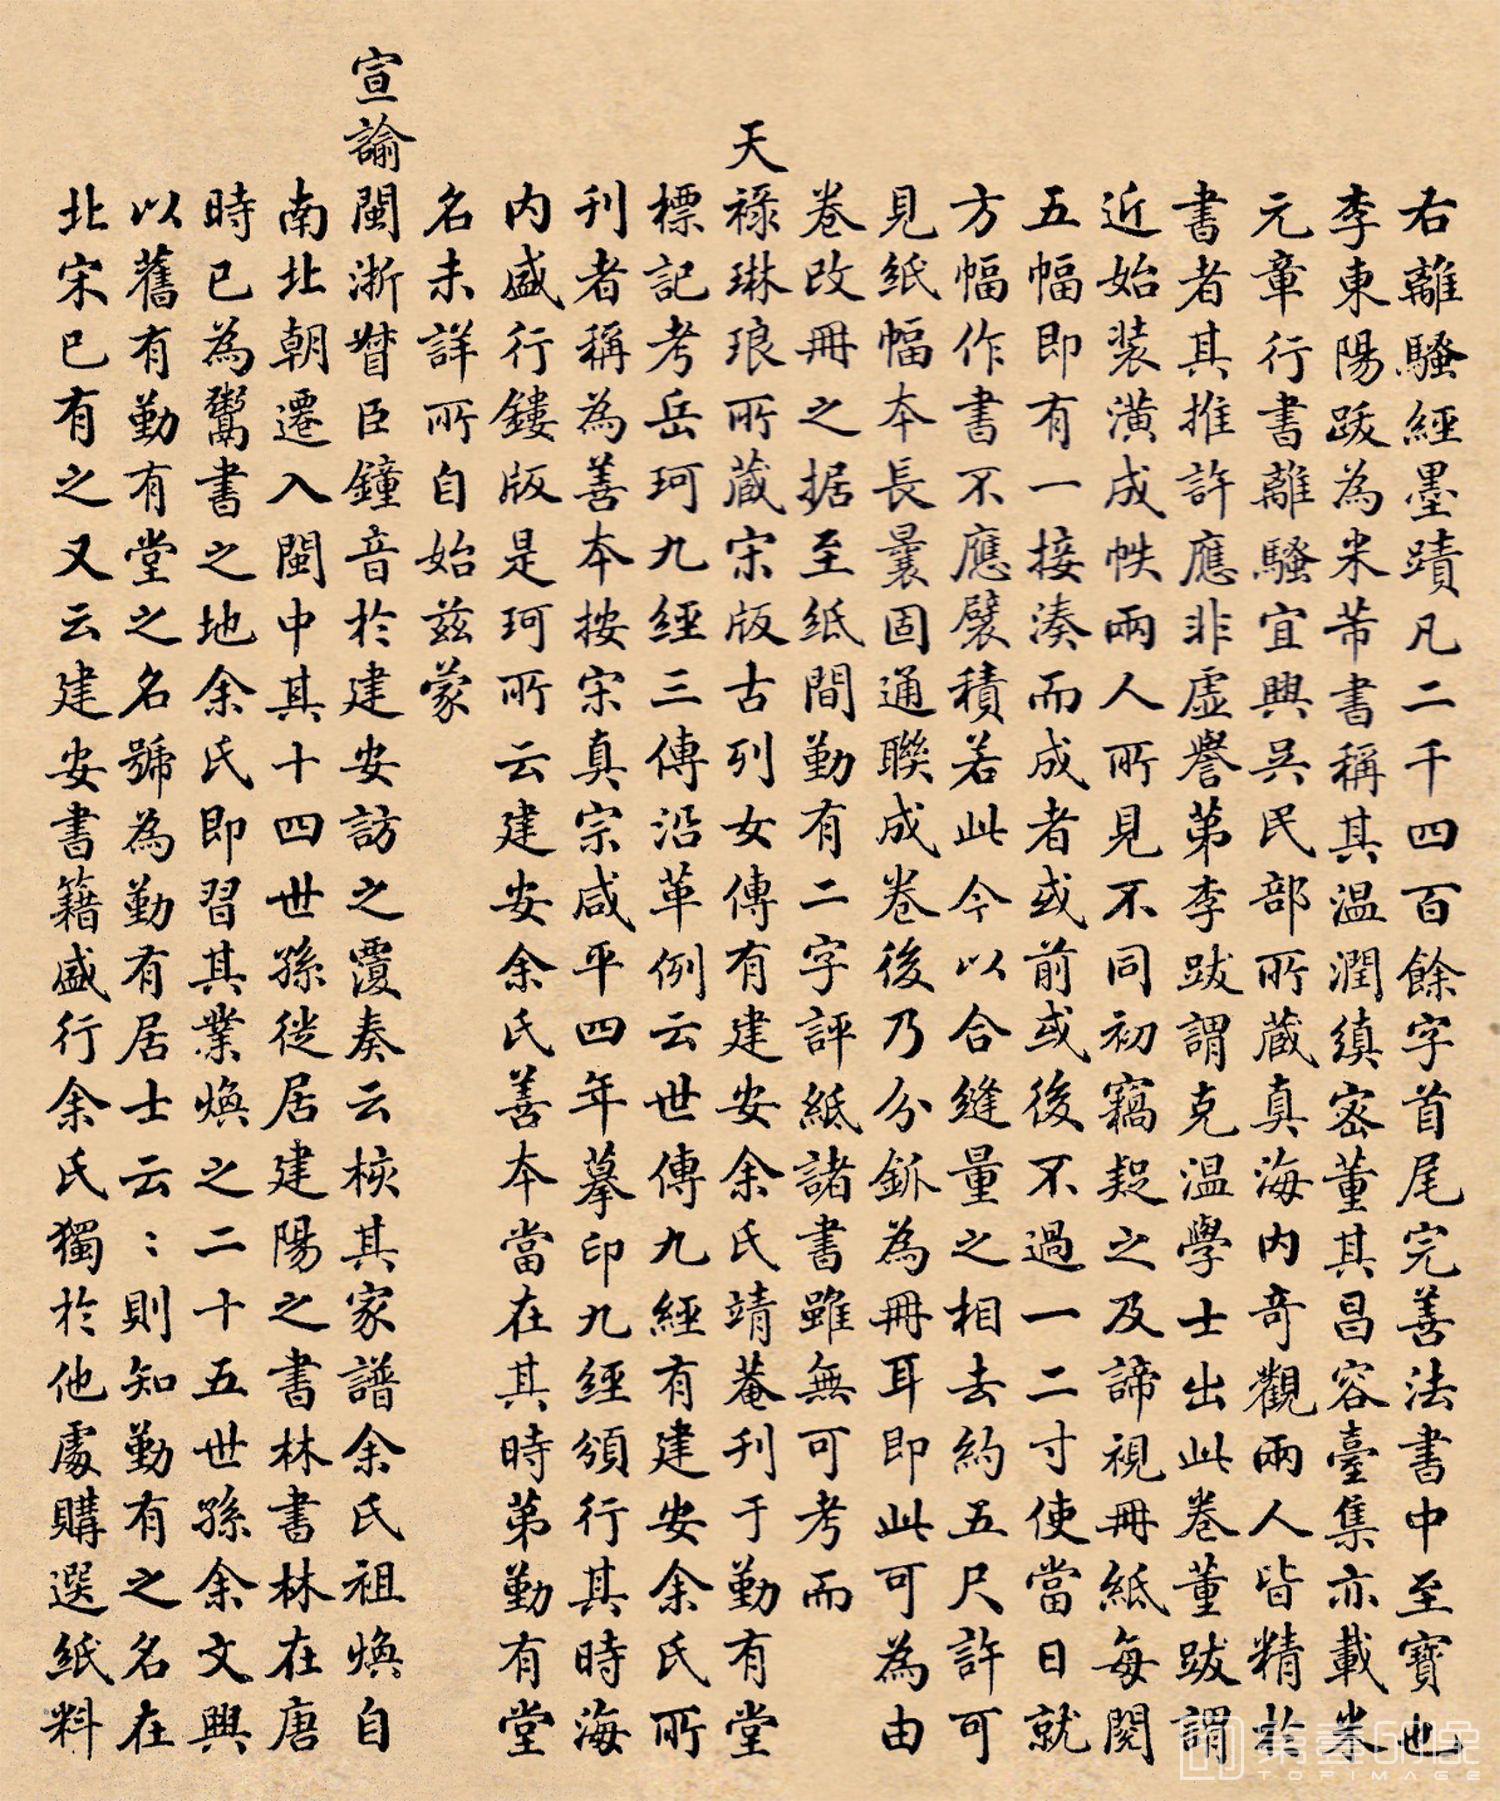 右離騷經墨蹟凡二千四百餘字首尾完善法書中至寶也
李東陽跋為米芾書稱其温潤縝密董其昌容臺集亦載米
元章行書離騷宜興吳民部所藏真海內奇觀兩人皆精於
書者其推許應非虛譽第李跋謂克温學士出此卷董跋謂
近始裝潢成帙兩人所見不同初竊疑之及諦視冊紙每閱
五幅即有一接湊而成者或前或後不過一二寸使當日就
方幅作書不應襞積若此今以合縫量之相去約五尺許可
見紙幅本長曩固通聯成卷後乃分鈲為冊耳即此可為由
卷改冊之据至紙間勤有二字評紙諸書雖無可考而
天祿琳琅所藏宋版古列女傳有建安余氏靖菴刊于勤有堂
標記考岳珂九經三傳沿革例云世傳九經有建安余氏所
刊者稱為善本按宋真宗咸平四年摹印九經頒行其時海
內盛行鏤版是珂所云建安余氏善本當在其時第勤有堂
名未詳所自始茲蒙
宣諭閩浙督臣鐘音於建安訪之覆奏云核其家譜余氏祖煥自
南北朝遷入閩中其十四世孫徙居建陽之書林書林在唐
時已為鬻書之地余氏即習其業煥之二十五世孫余文興
以舊有勤有堂之名號為勤有居士云：則知勤有之名在
北宋已有之又云建安書籍盛行余氏獨於他處購選紙料